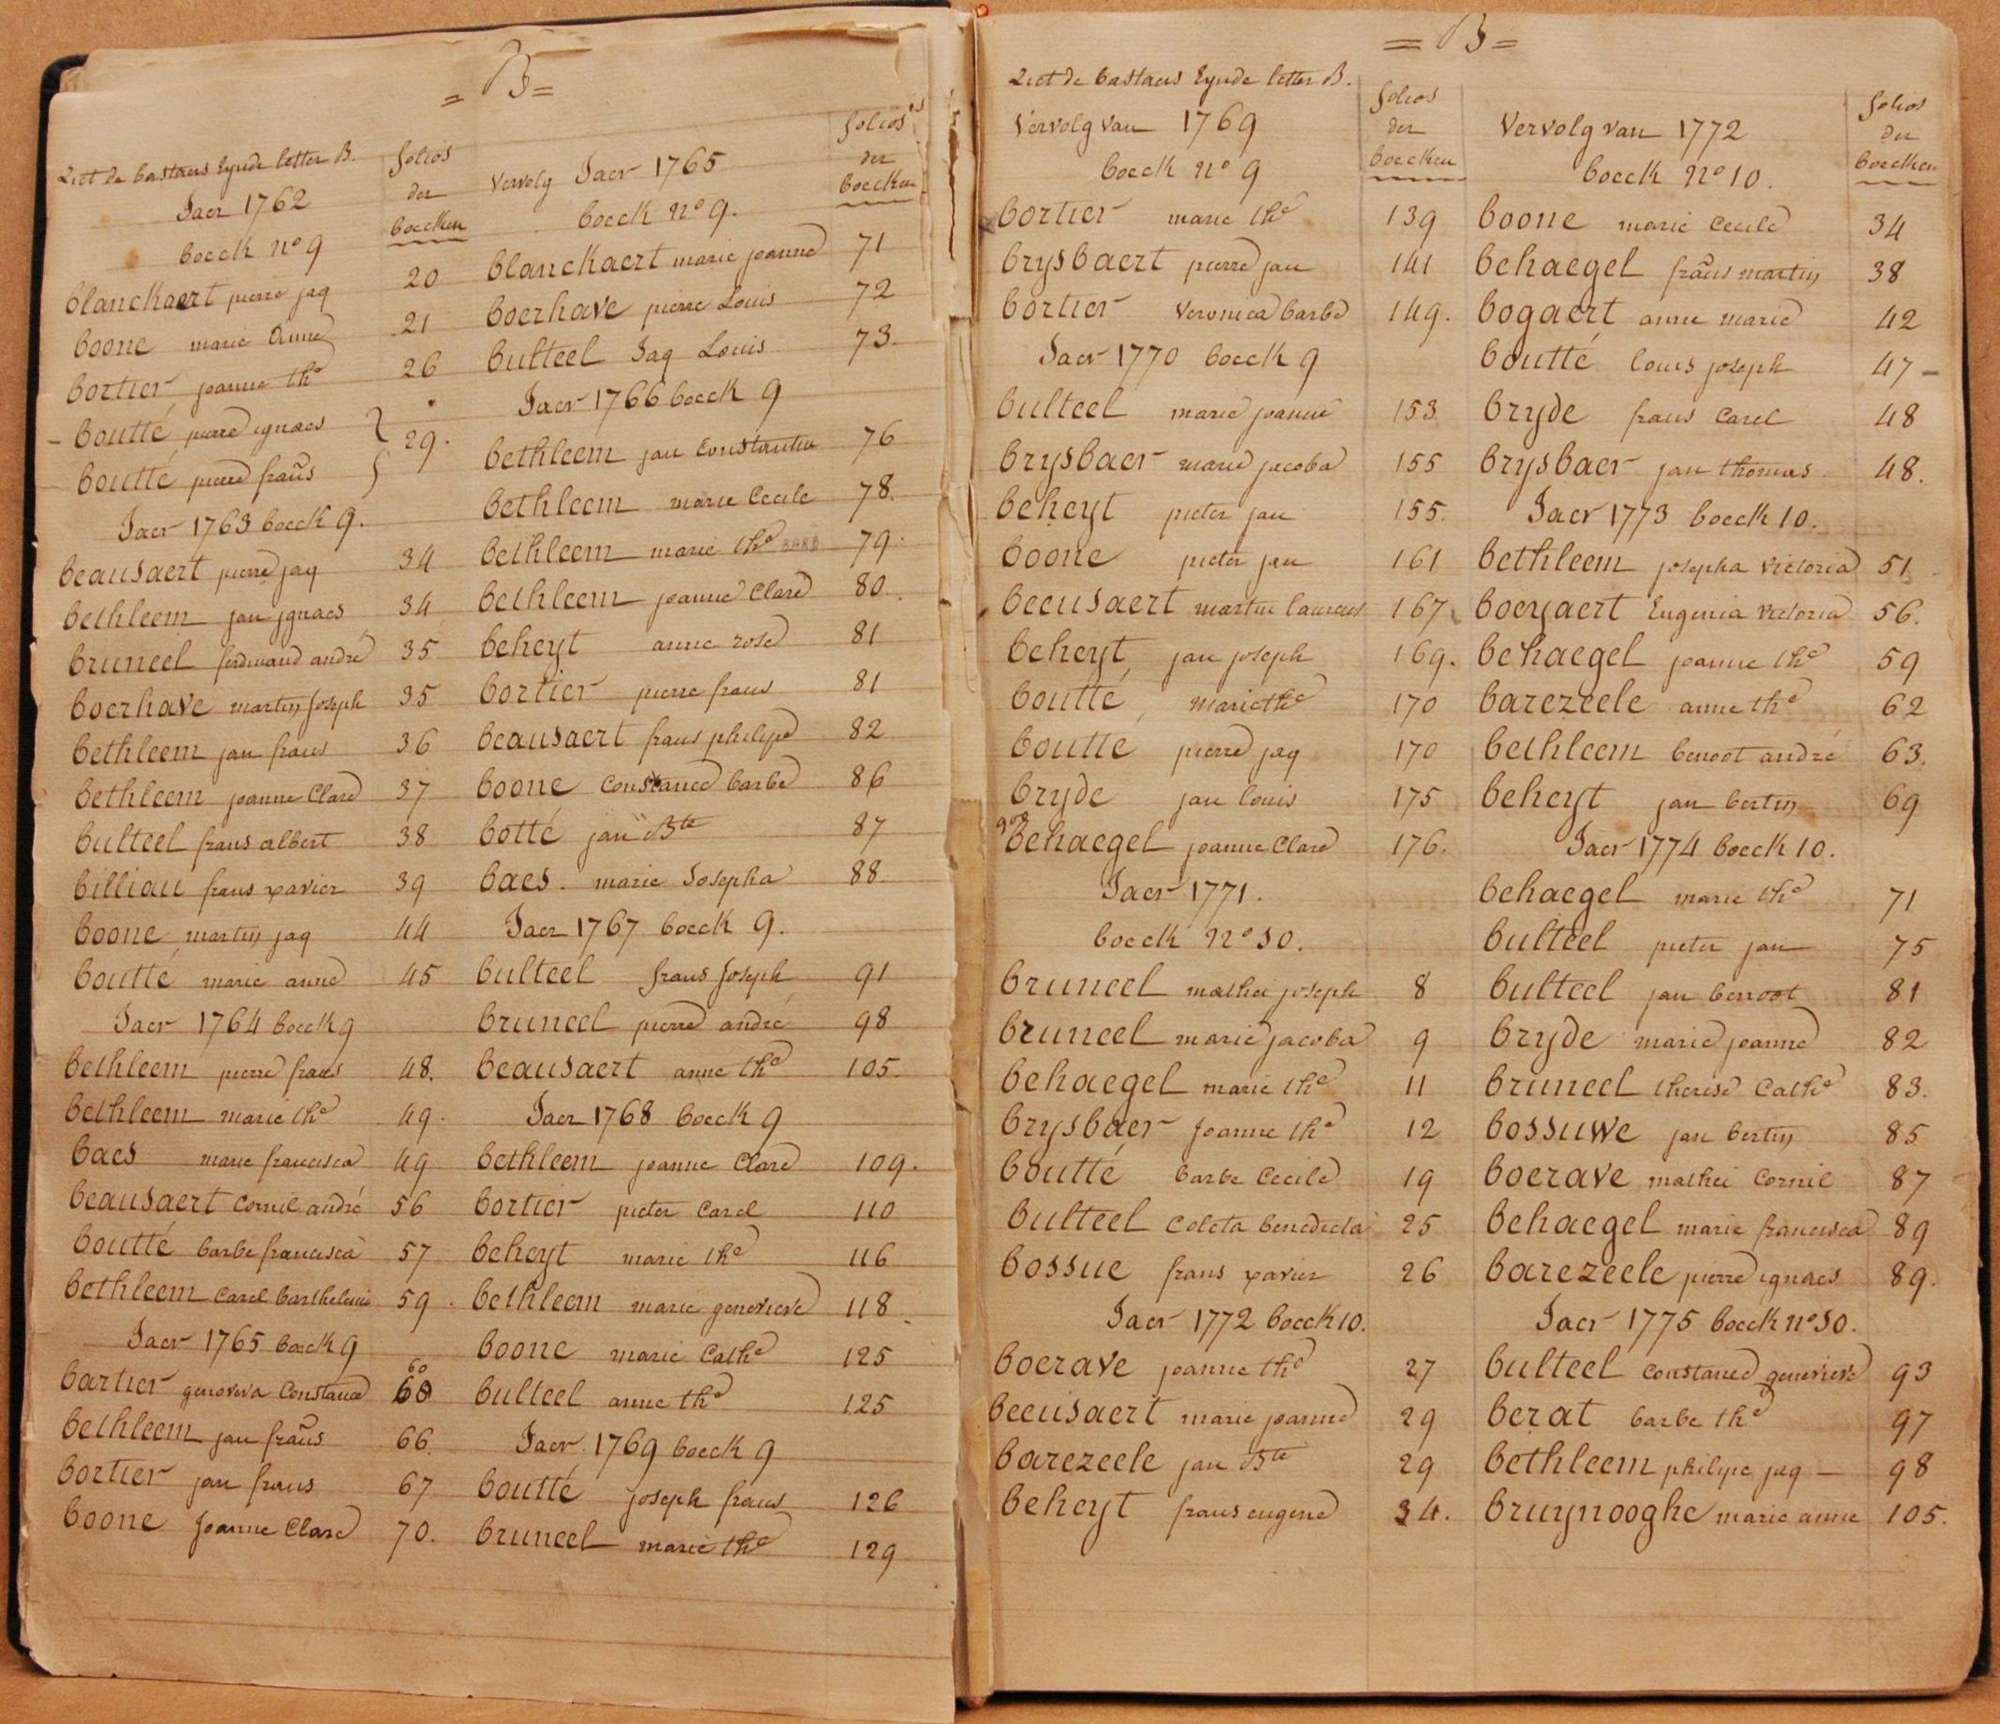 = B =
Liet de bastaers Eynde letter B.
folios
der
boecken
Jaer 1762
boeck n° 9
blanckaert pierre jaq 20
boone marie Anne 21
bortier joanne th^e 26
boutté pierre ignaes } 29.
boutté pierre frañs
Jaer 1763 boeck 9.
beausaert pierre jaq 34
bethleem jan jgnaes 34
bruneel ferdinand andré 35
boerhave martin Joseph 35
bethleem jan frans 36
bethleem joanne Clare 37
bulteel frans albert 38
billiau frans xavier 39
boone martin jaq 44
boutté marie anne 45
Jaer 1764 boeck 9
bethleem pierre frans 48.
bethleem marie th^e 49.
baes marie francisca 49
beausaert Cornil andré 56
boutté barbe francisca 57
bethleem Carel barthelemie 59.
Jaer 1765 boeck 9
60
bartier genoveva Constance 60
bethleem jan frañs 66.
bortier jan frans 67
boone Joanne Clare 70.
folios
der
boecken
vervolg Jaer 1765
boeck n° 9.
blanckaert marie joanne 71
boerhave pierre Louis 72
bulteel Jaq Louis 73.
Jaer 1766 boeck 9
bethleem jan Constantin 76
bethleem marie Cecile 78.
bethleem marie th^e BARB 79.
bethleem joanne Clare 80.
beheyt anne rose 81
bortier pierre frans 81
beausaert frans philipe 82
boone Constance barbe 86
botté jan B^te 87
baes. marie Josepha 88.
Jaer 1767 boeck 9.
bulteel frans Joseph 91
bruneel pierre andré 98
beausaert anne th^e 105.
Jaer 1768 boeck 9
bethleem joanne Clare 109.
bortier pieter Carel 110
beheyt marie th^e 116
bethleem marie genevieve 118.
boone marie Cath^e 125
bulteel anne th^e 125
Jaer 1769 boeck 9
boutté joseph frans 126
bruneel marie th^e 129
= B =
Liet de bastaers Eynde letter B.
folios
der
boecken
Vervolg van 1769
boeck n° 9
bortier marie th^e 139
brysbaert pierre jan 141
bortier veronica barbe 149.
Jaer 1770 boeck 9
bulteel marie joanne 153
brysbaer marie jacoba 155
beheyt pieter jan 155.
boone pieter jan 161
beeusaert martin laurens 167
beheyt jan joseph 169.
boutté marie th^e 170
boutté pierre jaq 170
bryde jan louis 175
behaegel joanne Clare 176.
Jaer 1771.
boeck n° 10.
bruneel mathei joseph 8
bruneel marie jacoba 9
behaegel marie th^e 11
brysbaer Joanne th^e 12
boutté barbe Cecile 19
bulteel Coleta benedicta 25
bossue frans xavier 26
Jaer 1772 boeck 10.
boerave joanne th^e 27
beeusaert marie joanne 29
barezeele jan B^te 29
beheyt frans eugene 34.
folios
der
boecken
Vervolg van 1772
boeck n° 10.
boone marie Cecile 34
behaegel frañs martin 38
bogaert anne marie 42
boutté louis joseph 47 -
bryde frans Carel 48
brysbaer jan thomas 48.
Jaer 1773 boeck 10.
bethleem josepha victoria 51
boeyaert Eugenia victoria 56.
behaegel joanne th^e 59
barezeele anne th^e 62
bethleem benoot andré 63.
beheyt jan bertin 69
Jaer 1774 boeck 10.
behaegel marie th^e 71
bulteel pieter jan 75
bulteel jan benoot 81
bryde marie joanne 82
bruneel therese Cath^e 83.
bossuwe jan bertin 85
boerave mathei Cornil 87
behaegel marie francisca 89
barezeele pierre ignaes 89.
Jaer 1775 boeck n° 10.
bulteel Constance genevieve 93
berat barbe th^e 97
bethleem philipe jaq 98
bruynooghe marie anne 105.